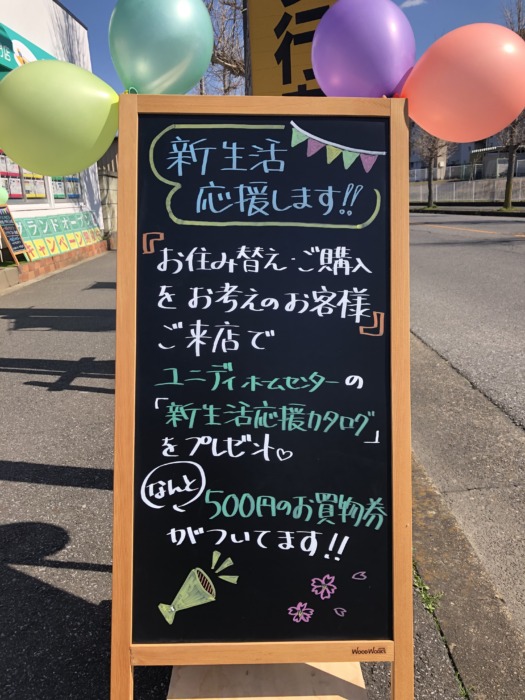 新生活
応援します!!
『お住み替え・ご購入
をお考えのお客様』
ご来店で
ユニディホームセンターの
「新生活応援カタログ」
をプレゼント♡
なんと
500円のお買物券
がついてます!!
WoooWoods
グランドオープン
キャンペーン
行